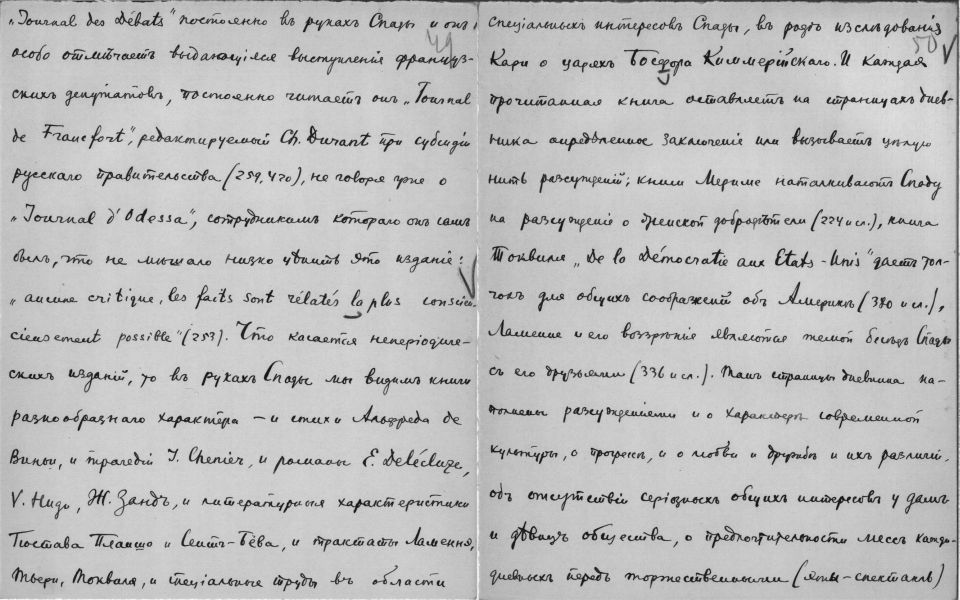 „Journal des Débats" постоянно въ рукахъ Спады и онъ
особо отмѣчаетъ выдающіяся выступленія француз-
скихъ депутатовъ, постоянно читаетъ онъ „Journal
de Francfort", редактируемый Ch. Durant при субсидіи
русскаго правительства (259, 470), не говоря уже о
„Journal d'Odessa", сотрудникомъ котораго онъ самъ
былъ, что не мѣшало низко цѣнить это изданіе:
„aucune critique, les faits sont rélatés la plus conscien-
cieusement possible" (253). Что касается неперіодиче-
скихъ изданій, то въ рукахъ Спады мы видимъ книги
разнообразнаго характера – и стихи Альфреда de
Виньи, и трагедіи J. Chenier, и романы E. Delécluze,
V. Гюго, Ж. Зандъ, и литературныя характеристики
Гюстава Планшо и Сентъ-Бёва, и трактаты Ламеннэ,
Тьери, Токвиля, и спеціальные труды въ области
49
спеціальныхъ интересовъ Спады, въ родѣ изслѣдованія
Кари о царяхъ Босфора Киммерійскаго. И каждая
прочитанная книга оставляетъ на страницахъ днев-
ника опредѣленное заключеніе или вызываетъ цѣлую
нить разсужденій; книги Мериме наталкиваютъ Спаду
на разсужденіе о женской добродѣтели (224 и сл.), книга
Токвиля „De la Démocratie aux Etats-Unis" даетъ тол-
чокъ для общихъ соображеній объ Америкѣ (380 и сл.),
Ламенне и его воззрѣніе являются темой бесѣдъ Спады
съ его друзьями (336 и сл.). Тамъ страницы дневника на-
полнены разсужденіями и о характерѣ современной
культуры, о прогрессѣ, и о любви и дружбѣ и ихъ различіи,
объ отсутствіи серіозныхъ общихъ интересовъ у дамъ
и дѣвицъ общества, о предпочтительности мессъ кажд-
дневныхъ передъ торжественными (яты-спектакль)
50